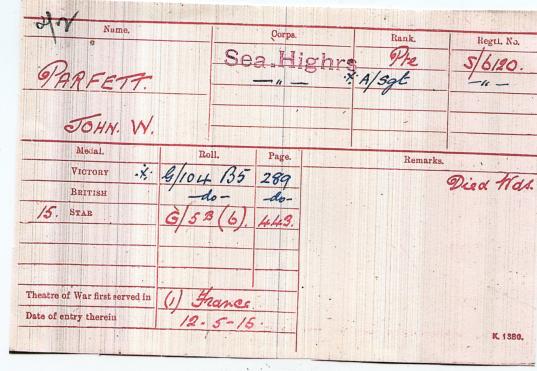 2/V
Name. Corps. Rank. Regtl. No.
Sea. Highrs Pte S/6120.
PARFETT. —"— X A/Sgt —"—
JOHN. W.
Medal. Roll. Page. Remarks.
VICTORY X G/104 B5 289 Died Wds.
BRITISH —do— —do—
15. STAR G/5B(b). 443.
Theatre of War first served in (1) France
Date of entry therein 12-5-15.
K. 1380.